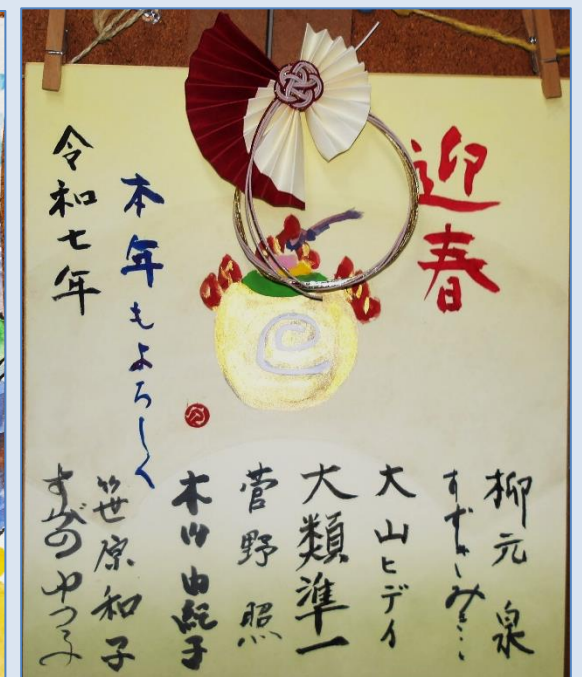 迎春
本年もよろしく
令和七年
柳元泉
すずきみき
大山ヒデイ
大類準一
菅野照
木山由紀子
笹原和子
すがのゆつ子